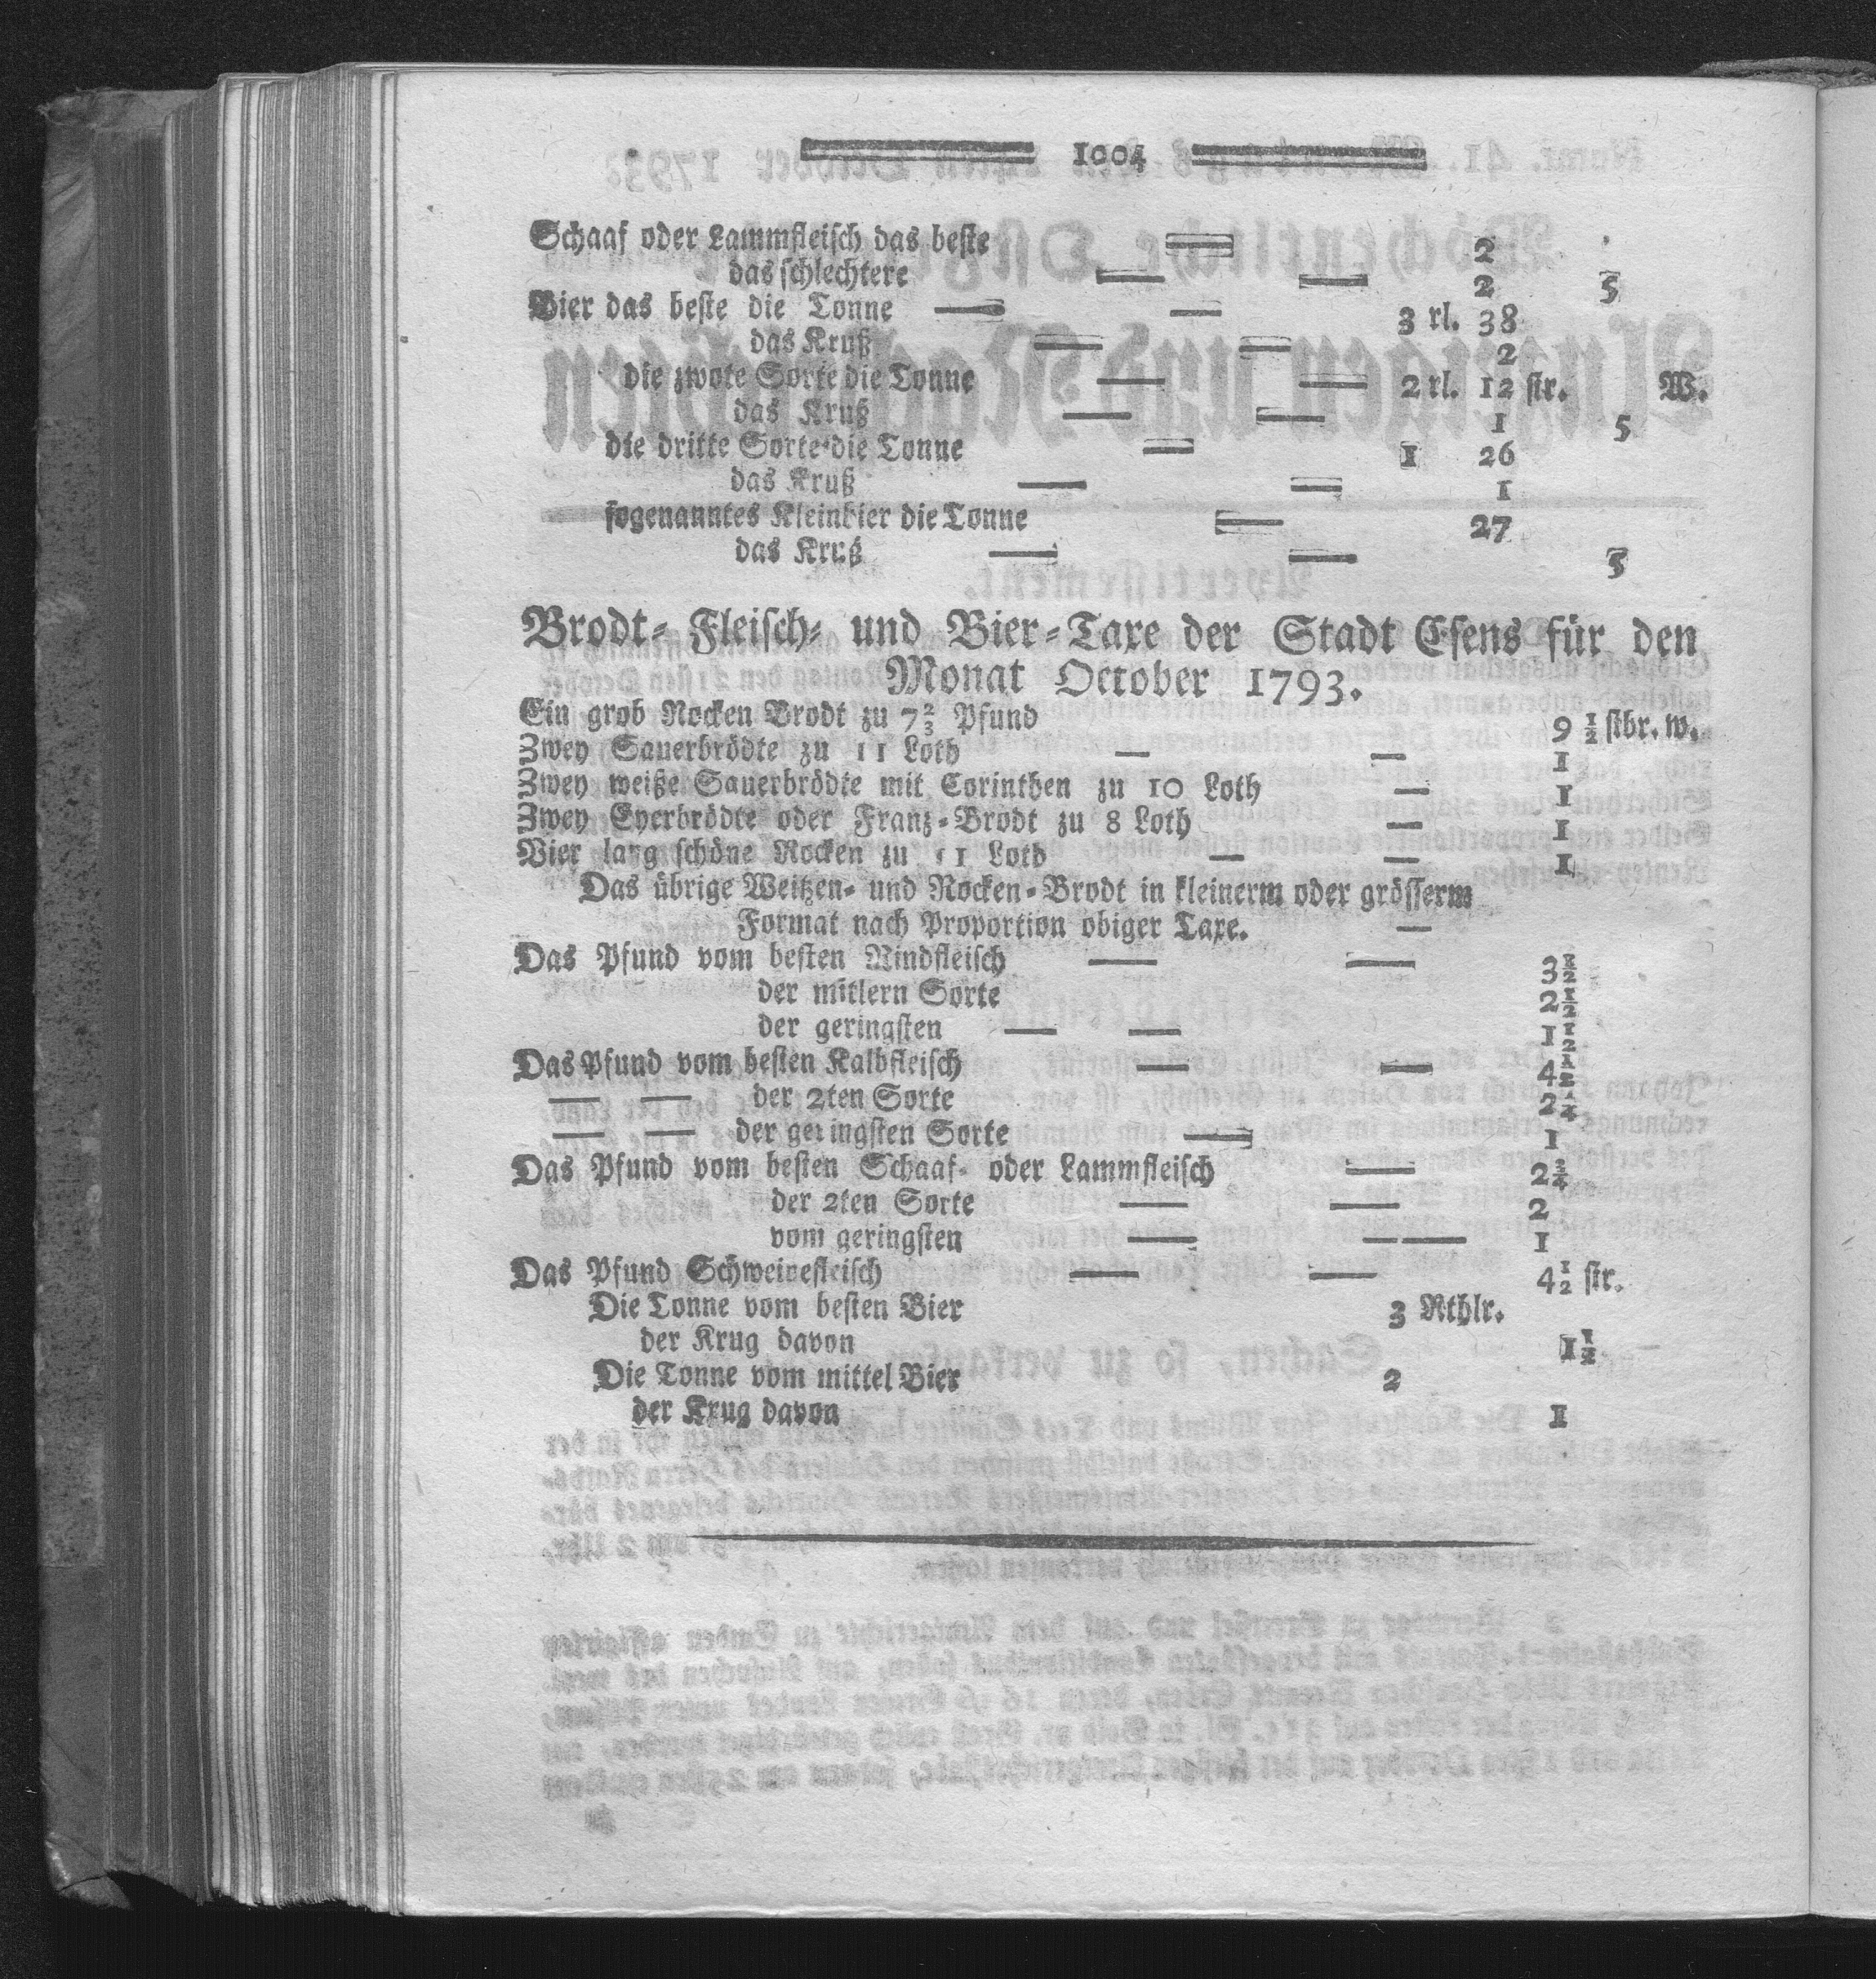 1004
Schaaf oder Lammfleisch das beste — 2
das schlechtere — — 2 5
Bier das beste die Tonne — — 3 rl. 38
das Kruß — — 2
die zwote Sorte die Tonne — — 2 rl. 12 str. W.
das Kruß — — 1 5
die dritte Sorte die Tonne — 1 26
das Kruß — — 1
sogenanntes Kleinbier die Tonne — 27
das Kruß — — 5
Brodt- Fleisch- und Bier-Taxe der Stadt Esens für den
Monat October 1793.
Ein grob Rocken Brodt zu 7 2/3 Pfund 9 1/2 stbr. w.
Zwey Sauerbrödte zu 11 Loth — — 1
Zwey weiße Sauerbrödte mit Corinthen zu 10 Loth — 1
Zwey Eyerbrödte oder Franz-Brodt zu 8 Loth — 1
Vier lang schöne Rocken zu 11 Loth — — 1
Das übrige Weitzen- und Rocken-Brodt in kleinerm oder grösserm
Format nach Proportion obiger Taxe. —
Das Pfund vom besten Rindfleisch — — 3 1/2
der mitlern Sorte 2 1/2
der geringsten — — 1 1/2
Das Pfund vom besten Kalbfleisch — — 4 1/2
— — der 2ten Sorte 2 1/4
— — der geringsten Sorte — 1
Das Pfund vom besten Schaaf- oder Lammfleisch — 2 3/4
der 2ten Sorte — — 2
vom geringsten — — — 1
Das Pfund Schweinefleisch — — 4 1/2 str.
Die Tonne vom besten Bier 3 Rthlr.
der Krug davon 1 1/2
Die Tonne vom mittel Bier 2
der Krug davon 1